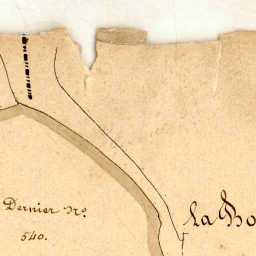 Dernier No.
540.
La Bo